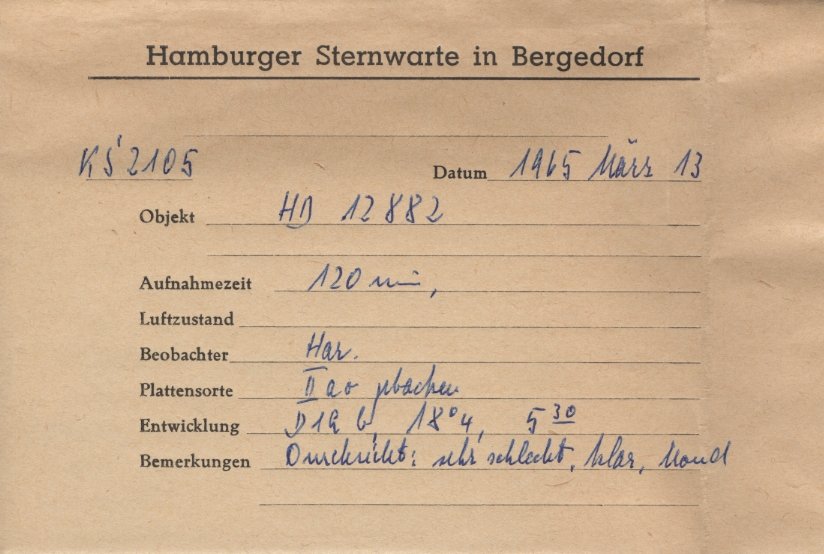 Hamburger Sternwarte in Bergedorf
KS 2105
Datum 1965 März 13
Objekt HD 12882
Aufnahmezeit 120 min,
Luftzustand
Beobachter Har.
Plattensorte IIaO gebacken
Entwicklung D19b, 18°4, 5 30
Bemerkungen Durchsicht: sehr schlecht, klar, Mond